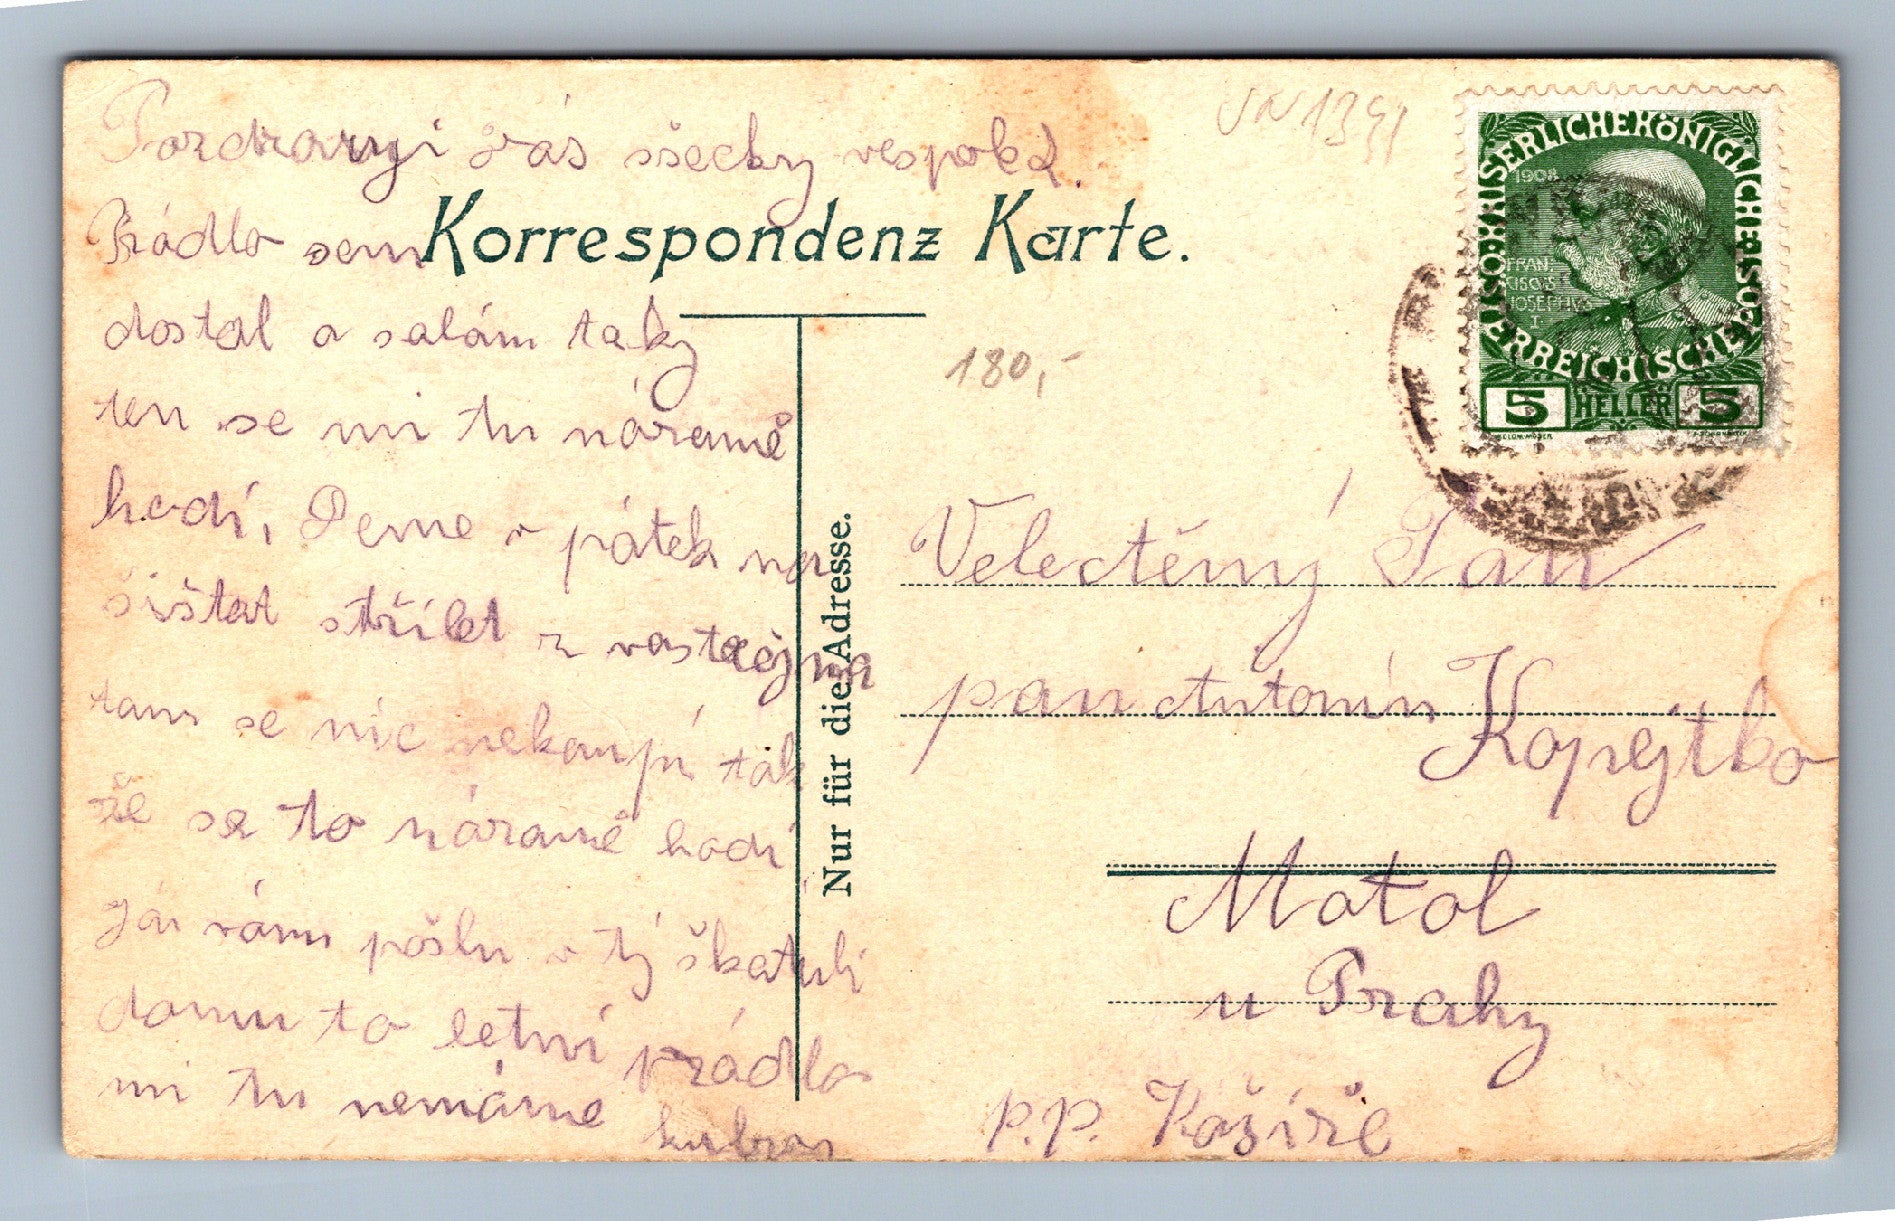 Pozdravuji vás všecky vespolek.
Prádlo sem
dostal a salám taky
ten se mi tu náramě
hodí, Deme v pátek na
šištat střílet z
tam se nic nekoupí tak
že se to náramě hodí
Já vám pošlu v tý škatuli
domu to letní prádlo
mi tu nemáme
Korrespondenz Karte.
180,-
Nur für die Adresse.
Velectěný Pan
pan Antonín Kopejtko
Motol
u Prahy
p.p. Košíře
KAISERLICHEKÖNIGLICHE
1908
FRAN
CISCVS
IOSEPHVS
I
ÖSTERREICHISCHE POST
5 HELLER 5